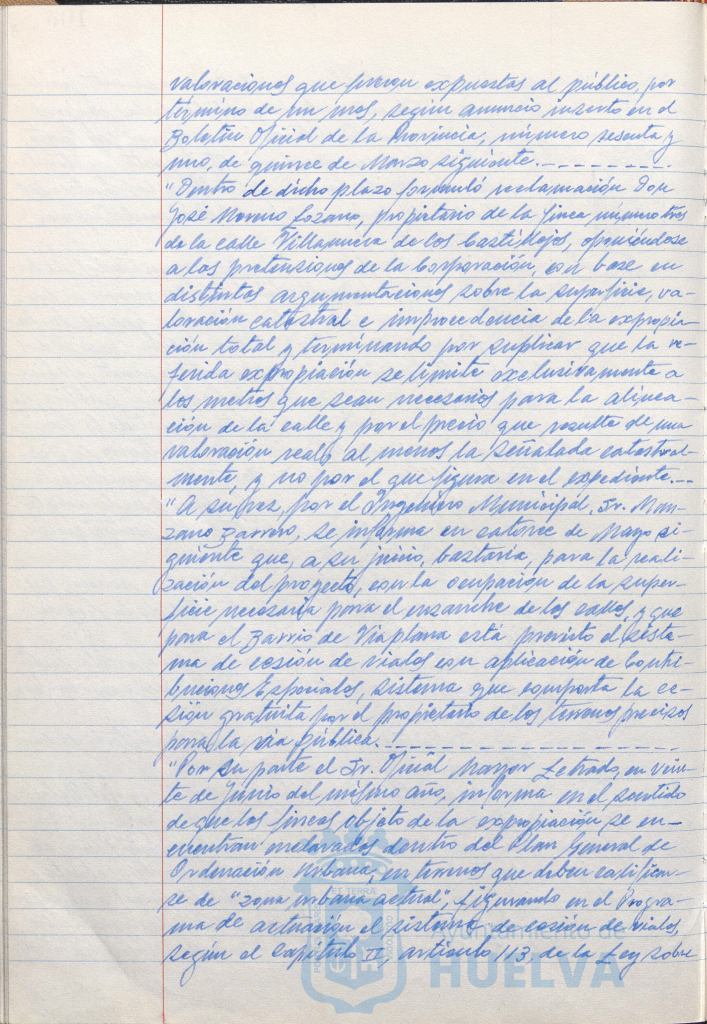 valoraciones que fueron expuestas al público, por
término de un mes, según anuncio inserto en el
Boletín Oficial de la Provincia, número sesenta y
uno, de quince de Marzo siguiente.--------
"Dentro de dicho plazo formuló reclamación Don
José Moreno Lozano, propietario de la finca número tres
de la calle Villanueva de los Castillejos, oponiéndose
a las pretensiones de la Corporación, con base en
distintas argumentaciones sobre la superficie, va-
loración catastral e improcedencia de la expropia-
ción total y terminando por suplicar que la re-
ferida expropiación se limite exclusivamente a
los metros que sean necesarios para la alinea-
ción de la calle y por el precio que resulte de una
valoración real o al menos la señalada catastral-
mente, y no por el que figura en el expediente.--
"A su vez, por el Ingeniero Municipal, Sr. Man-
zano Barrero, se informa en catorce de Mayo si-
guiente que, a su juicio, bastaría, para la reali-
zación del proyecto, con la ocupación de la super-
ficie necesaria para el ensanche de las calles, y que
para el Barrio de Viaplana está previsto el siste-
ma de cesión de viales con aplicación de Contri-
buciones Especiales, sistema que comporta la ce-
sión gratuita por el propietario de los terrenos precisos
para la vía pública.--------------------
"Por su parte el Sr. Oficial Mayor Letrado, en vein-
te de Junio del mismo año, informa en el sentido
de que las fincas objeto de la expropiación se en-
cuentran enclavadas dentro del Plan General de
Ordenación Urbana, en terrenos que deben calificar-
se de "zona urbana actual", figurando en el Progra-
ma de actuación el sistema de cesión de viales,
según el Capítulo II, artículo 113, de la Ley sobre
Ayuntamiento de
HUELVA